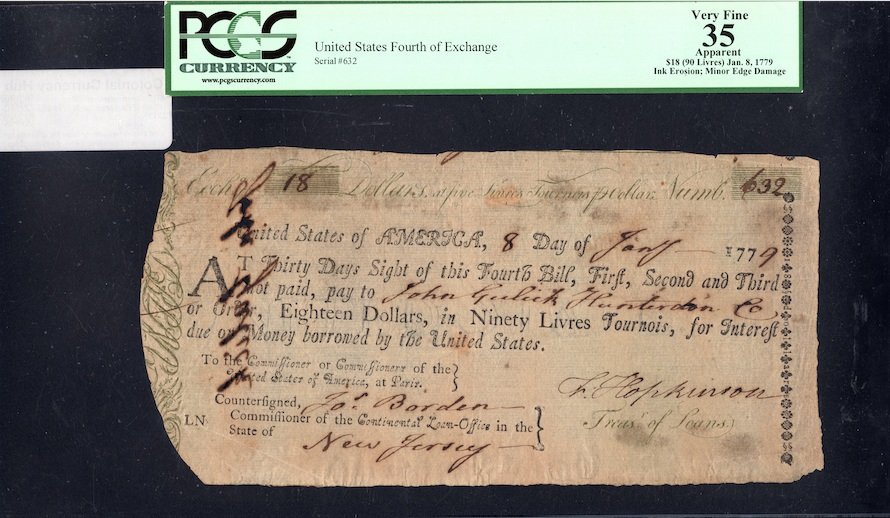 PCGS
CURRENCY
www.pcgscurrency.com
United States Fourth of Exchange
Serial #632
Very Fine
35
Apparent
$18 (90 Livres) Jan. 8, 1779
Ink Erosion; Minor Edge Damage
Colonial Currency Hub
Exchᵉ 18 Dollars, at five Livres Tournois ꝑ Dollar. Numb. 632
United States of AMERICA, 8 Day of Janʸ 1779
AT Thirty Days Sight of this Fourth Bill, First, Second and Third
not paid, pay to John Gulick Hunterdon Co
or Order, Eighteen Dollars, in Ninety Livres Tournois, for Interest
due on Money borrowed by the United States.
To the Commissioner or Commissioners of the
United States of America, at Paris.
Countersigned, Joˢ. Borden
Commissioner of the Continental Loan-Office in the
State of
New Jersey
LN
F. Hopkinson
Treasʳ. of Loans.